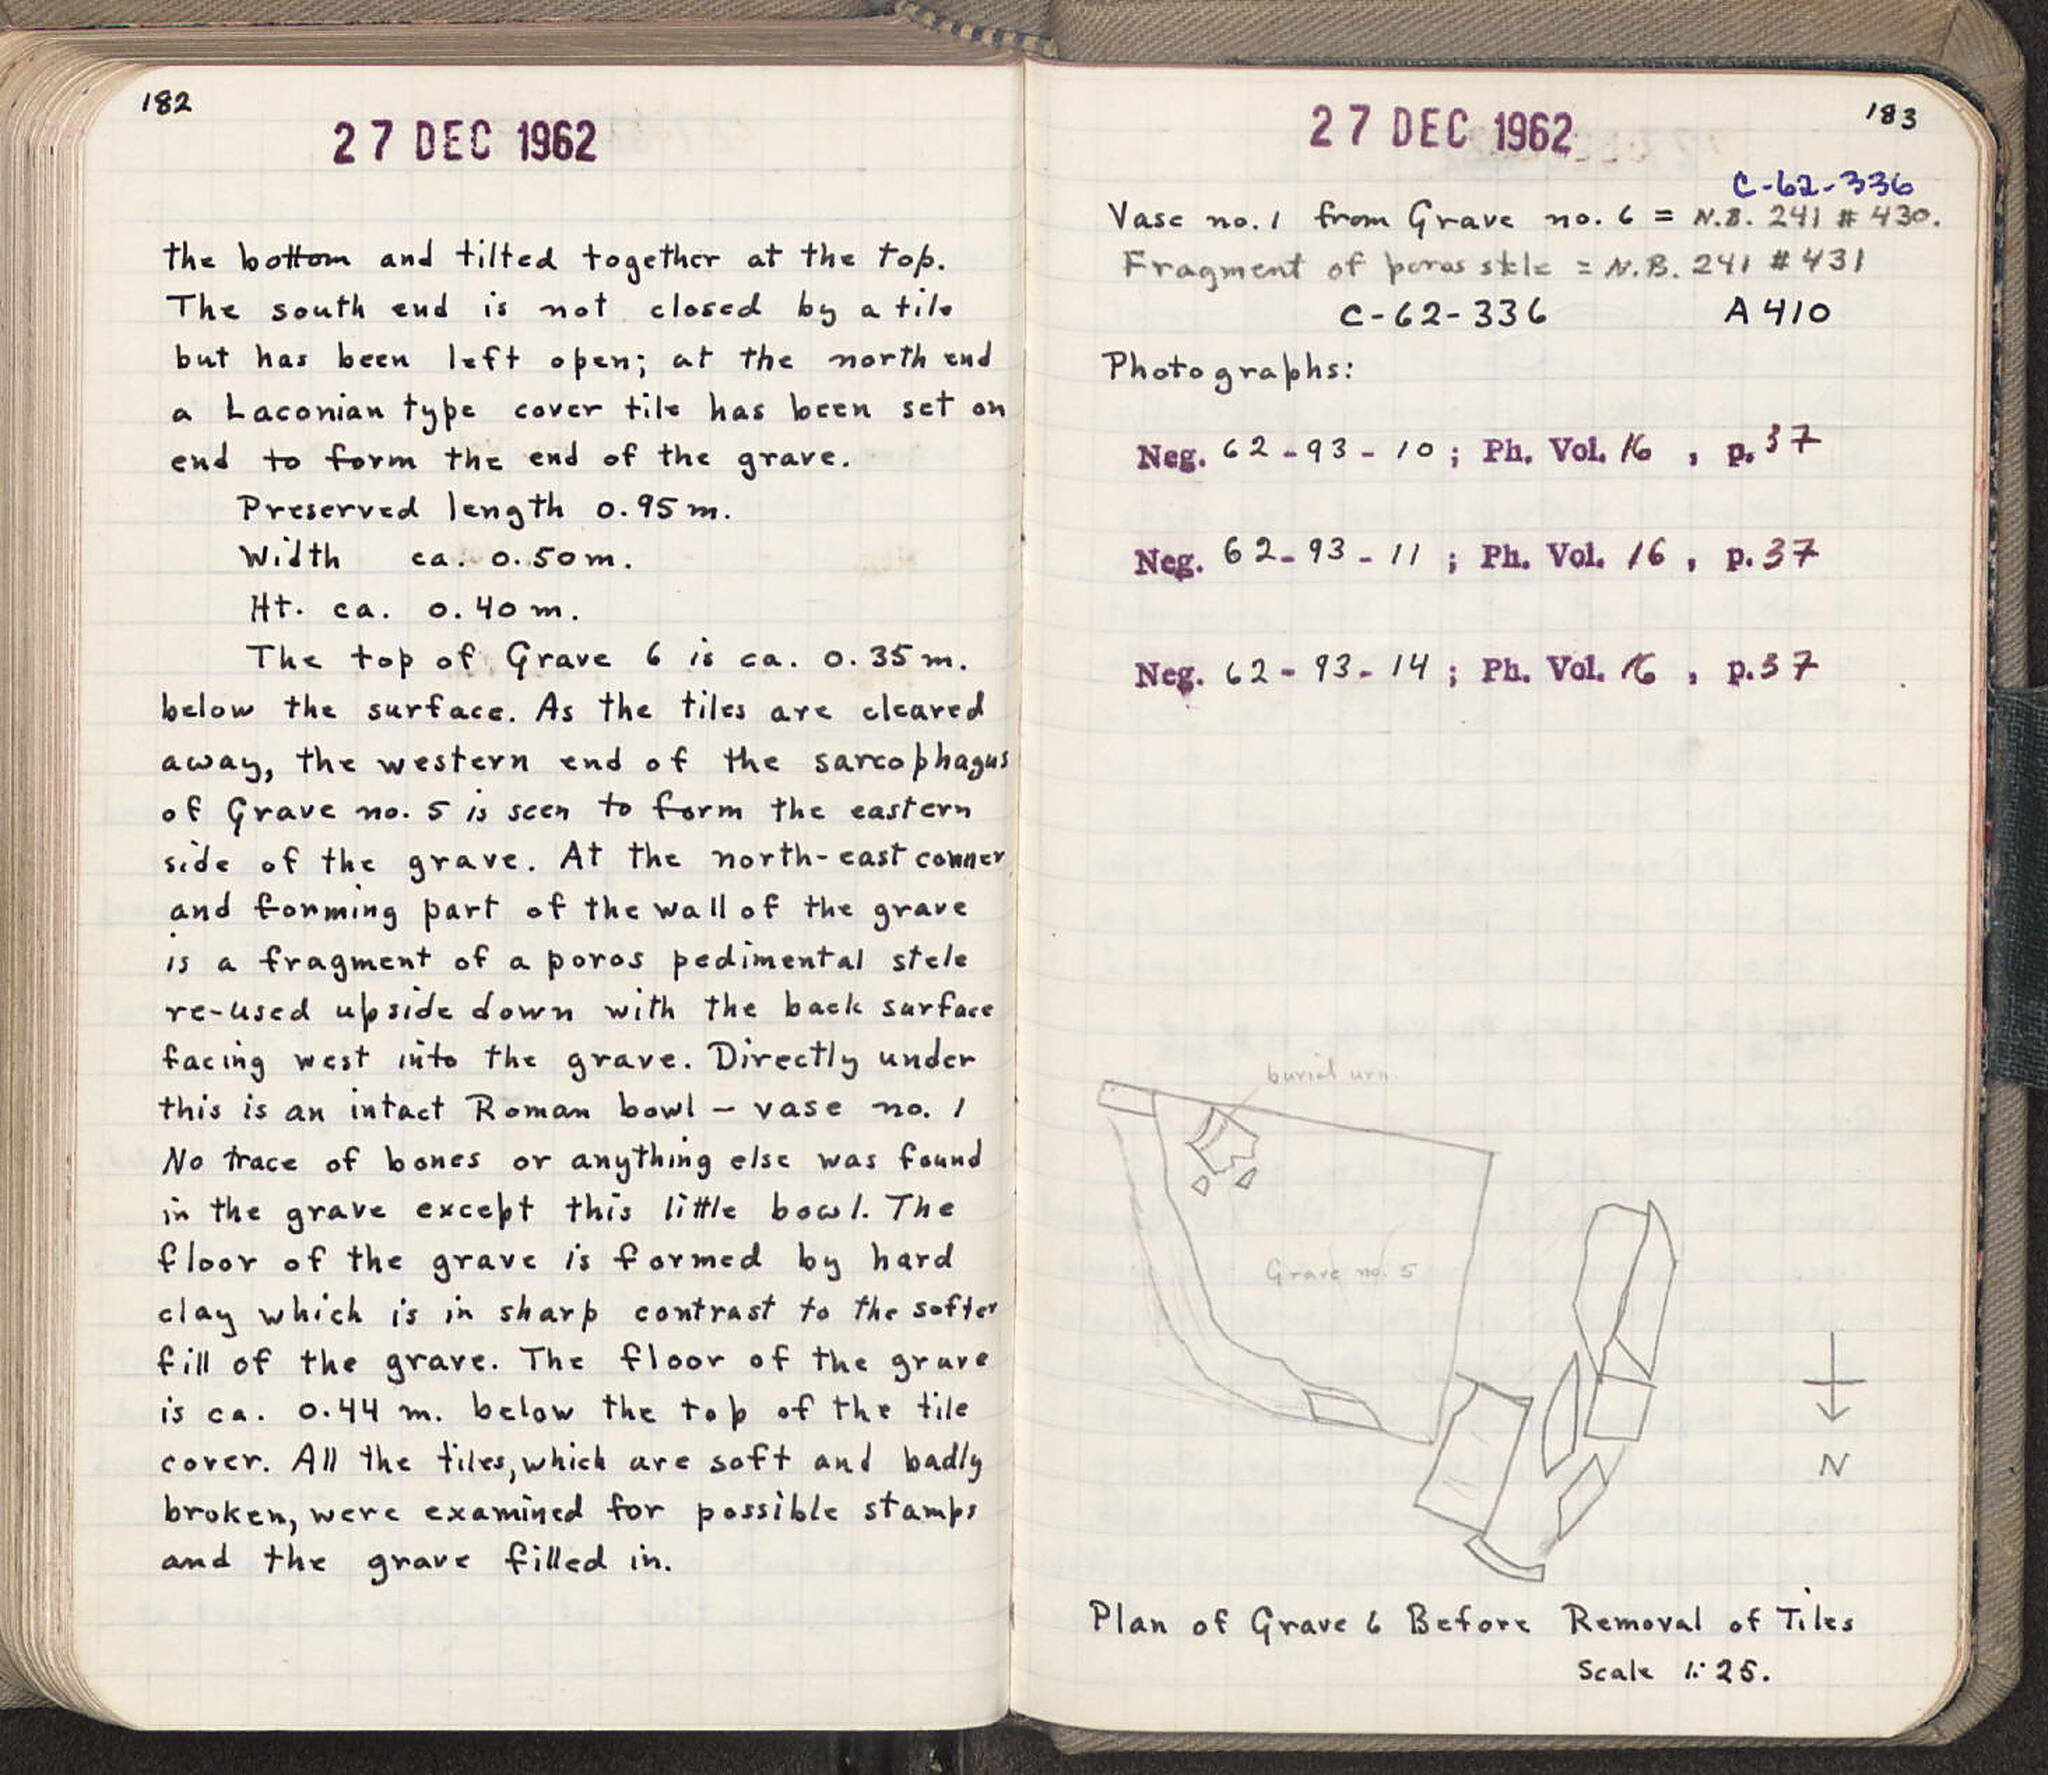 182
27 DEC 1962
the bottom and tilted together at the top.
The south end is not closed by a tile
but has been left open; at the north end
a Laconian type cover tile has been set on
end to form the end of the grave.
Preserved length 0.95 m.
Width ca. 0.50 m.
Ht. ca. 0.40 m.
The top of Grave 6 is ca. 0.35 m.
below the surface. As the tiles are cleared
away, the western end of the sarcophagus
of Grave no. 5 is seen to form the eastern
side of the grave. At the north-east corner
and forming part of the wall of the grave
is a fragment of a poros pedimental stele
re-used upside down with the back surface
facing west into the grave. Directly under
this is an intact Roman bowl - vase no. 1
No trace of bones or anything else was found
in the grave except this little bowl. The
floor of the grave is formed by hard
clay which is in sharp contrast to the softer
fill of the grave. The floor of the grave
is ca. 0.44 m. below the top of the tile
cover. All the tiles, which are soft and badly
broken, were examined for possible stamps
and the grave filled in.
183
27 DEC 1962
C-62-336
Vase no. 1 from Grave no. 6 = N.B. 241 # 430.
Fragment of poros stele = N.B. 241 # 431
C-62-336 A 410
Photographs:
Neg. 62-93-10; Ph. Vol. 16, p. 37
Neg. 62-93-11; Ph. Vol. 16, p. 37
Neg. 62-93-14; Ph. Vol. 16, p. 37
burial urn.
Grave no. 5
N
Plan of Grave 6 Before Removal of Tiles
Scale 1:25.